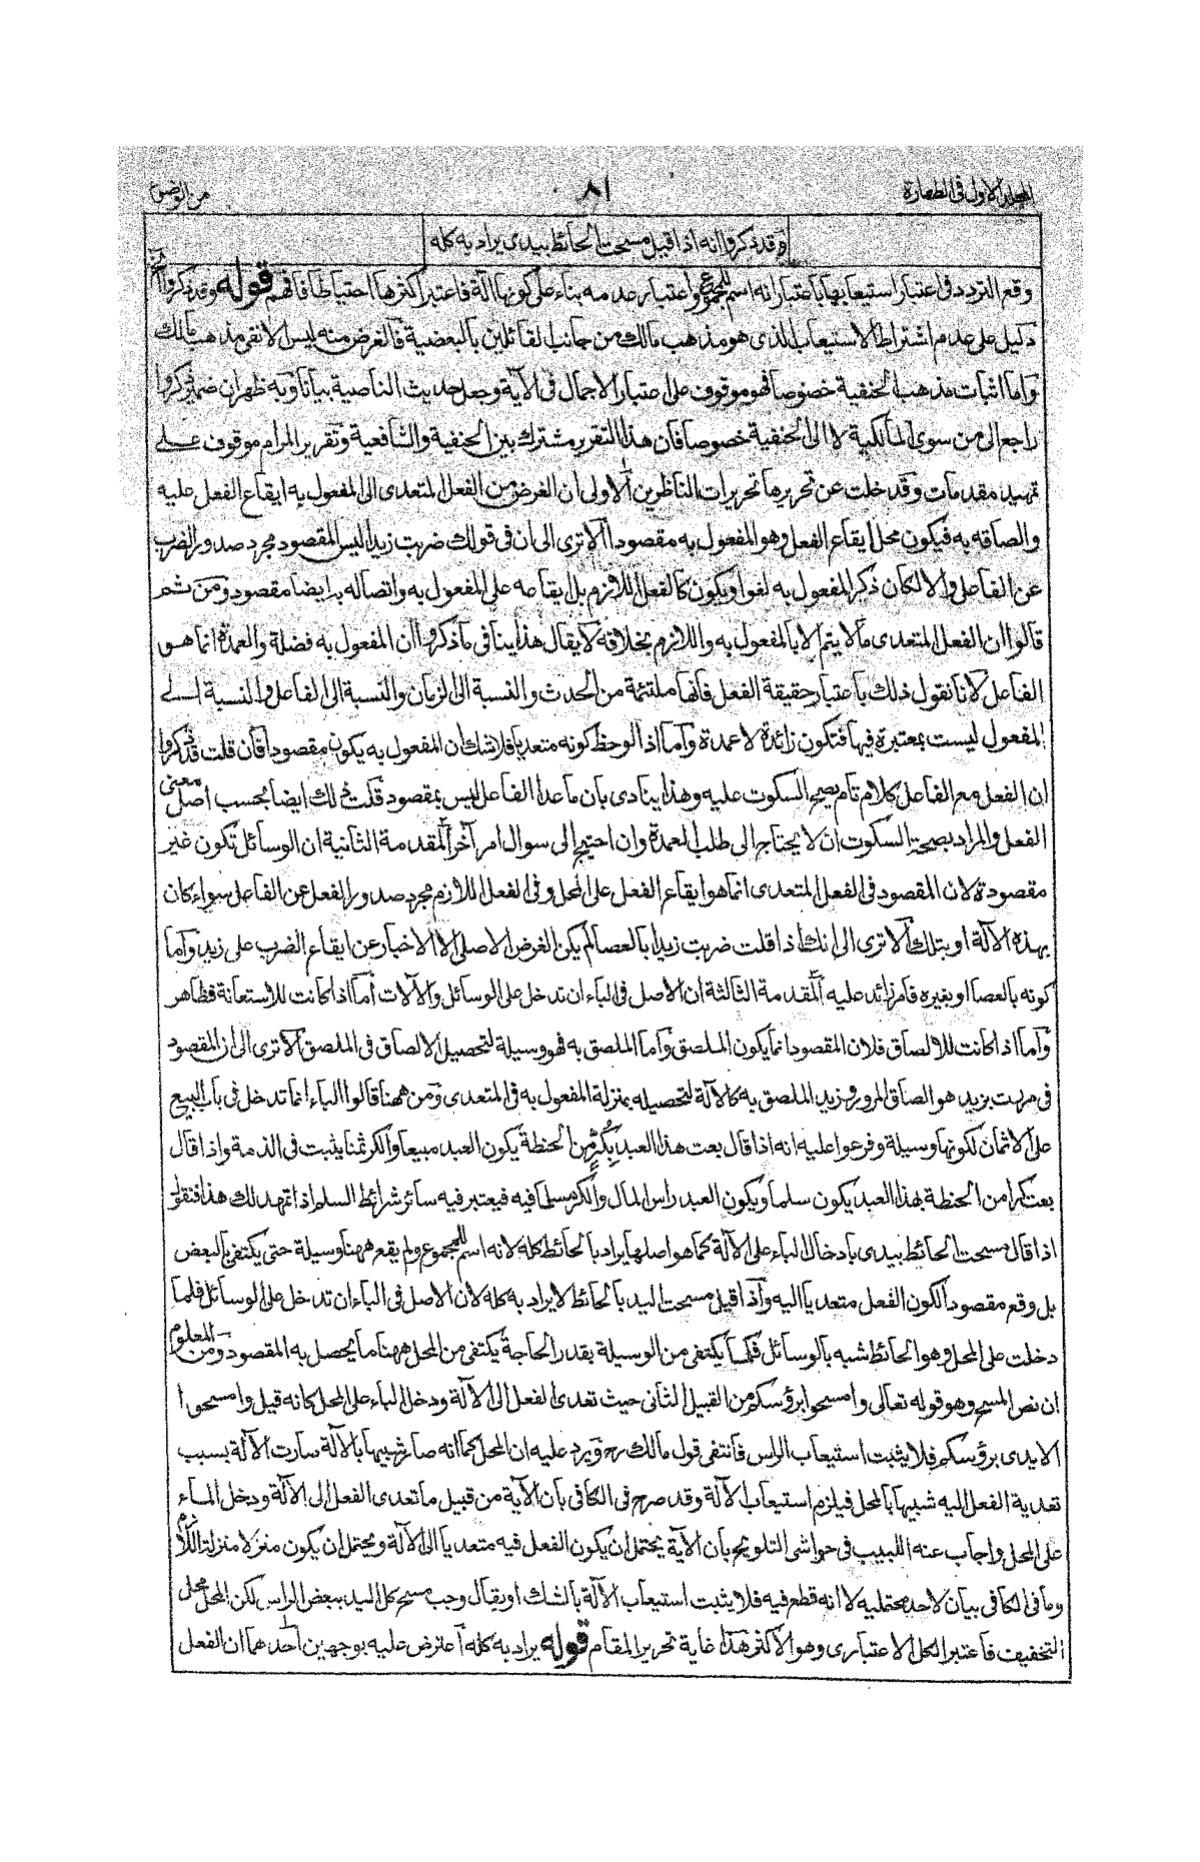 المجلد الاول فى الطهارة
٨١
من الوضوء
وقد ذكروا انه اذا قيل مسحت الحائط بيدى يراد به كله
وقع التردد فى اعتبار استيعابها باعتبار انه اسم للمجموع واعتبار عدمه بناء على كونها آلة فاعتبر اكثرها احتياطا فافهم قوله وقد ذكروا الخ
دليل على عدم اشتراط الاستيعاب الذى هو مذهب مالك من جانب القائلين بالبعضية فالغرض منه ليس الا نفى مذهب مالك
واما اثبات مذهب الحنفية خصوصا فهو موقوف على اعتبار الاجمال فى الآية وجعل حديث الناصية بيانا وبه ظهر ان ضمير ذكروا
راجع الى من سوى المالكية لا الى الحنفية خصوصا فان هذا التقرير مشترك بين الحنفية والشافعية وتقرير المرام موقوف على
تمهيد مقدمات وقد خلت عن تحريرها تحريرات الناظرين الاولى ان الغرض من الفعل المتعدى الى المفعول به ايقاع الفعل عليه
والصاقه به فيكون محل ايقاع الفعل وهو المفعول به مقصودا الا ترى الى ان فى قولك ضربت زيدا ليس المقصود مجرد صدور الضرب
عن الفاعل والا لكان ذكر المفعول به لغوا ويكون كالفعل اللازم بل ايقاعه على المفعول به واتصاله به ايضا مقصود ومن ثم
قالوا ان الفعل المتعدى ما لا يتم الا بالمفعول به واللازم بخلافه لا يقال هذا ينافى ما ذكروا ان المفعول به فضلة والعمدة انما هو
الفاعل لانا نقول ذلك باعتبار حقيقة الفعل فانها ملتئمة من الحدث والنسبة الى الزمان والنسبة الى الفاعل والنسبة الى
المفعول ليست بمعتبرة فيها فتكون زائدة لا عمدة واما اذا لوحظ كونه متعديا فلا شك ان المفعول به يكون مقصودا فان قلت قد ذكروا
ان الفعل مع الفاعل كلام تام يصح السكوت عليه وهذا ينادى بان ما عدا الفاعل ليس بمقصود قلت ذلك ايضا بحسب اصل معنى
الفعل والمراد بصحة السكوت ان لا يحتاج الى طلب العمدة وان احتيج الى سوال امر آخر المقدمة الثانية ان الوسائل تكون غير
مقصودة لان المقصود فى الفعل المتعدى انما هو ايقاع الفعل على المحل وفى الفعل اللازم مجرد صدور الفعل عن الفاعل سواء كان
بهذه الآلة او بتلك الا ترى الى انك اذا قلت ضربت زيدا بالعصا لم يكن الغرض الاصلى الا الاخبار عن ايقاع الضرب على زيد واما
كونه بالعصا او بغيره فامر زائد عليه المقدمة الثالثة ان الاصل فى الباء ان تدخل على الوسائل والآلات اما اذا كانت للاستعانة فظاهر
واما اذا كانت للالصاق فلان المقصود انما يكون الملصق واما الملصق به فهو وسيلة لتحصيل الالصاق فى الملصق الا ترى الى ان المقصود
فى مررت بزيد هو الصاق المرور وزيد الملصق به كالآلة لتحصيله بمنزلة المفعول به فى المتعدى ومن ههنا قالوا الباء انما تدخل فى باب البيع
على الاثمان لكونها وسيلة وفرعوا عليه انه اذا قال بعت هذا العبد بكر من الحنطة يكون العبد مبيعا والكر ثمنا يثبت فى الذمة واذا قال
بعت كرا من الحنطة بهذا العبد يكون سلما ويكون العبد راس المال والكر مسلما فيه فيعتبر فيه سائر شرائط السلم اذا تمهد لك هذا فنقول
اذا قال مسحت الحائط بيدى بادخال الباء على الآلة كما هو اصلها يراد بالحائط كله لانه اسم للمجموع ولم يقع ههنا وسيلة حتى يكتفى بالبعض
بل وقع مقصودا لكون الفعل متعديا اليه واذا قيل مسحت اليد بالحائط لا يراد به كله لان الاصل فى الباء ان تدخل على الوسائل فلما
دخلت على المحل وهو الحائط شبه بالوسائل فكما يكتفى من الوسيلة بقدر الحاجة يكتفى من المحل ههنا ما يحصل به المقصود ومن المعلوم
ان نص المسح وهو قوله تعالى وامسحوا برؤسكم من القبيل الثانى حيث تعدى الفعل الى الآلة ودخل الباء على المحل كانه قيل وامسحوا
الايدى برؤسكم فلا يثبت استيعاب الراس فانتفى قول مالك رح ويرد عليه ان المحل كما انه صار شبيها بالآلة صارت الآلة بسبب
تعدية الفعل اليه شبيها بالمحل فيلزم استيعاب الآلة وقد صرح فى الكافى بان الآية من قبيل ما تعدى الفعل الى الآلة ودخل الباء
على المحل واجاب عنه اللبيب فى حواشى التلويح بان الآية يحتمل ان يكون الفعل فيه متعديا الى الآلة ويحتمل ان يكون منزلا منزلة اللازم
وما فى الكافى بيان لاحد محتمليه لا انه قطع فيه فلا يثبت استيعاب الآلة بالشك او يقال وجب مسح كل اليد ببعض الراس لكن المحل محل
التخفيف فاعتبر الكل الاعتبارى وهو الاكثر هذا غاية تحرير المقام قوله يراد به كله اعترض عليه بوجهين احدهما ان الفعل